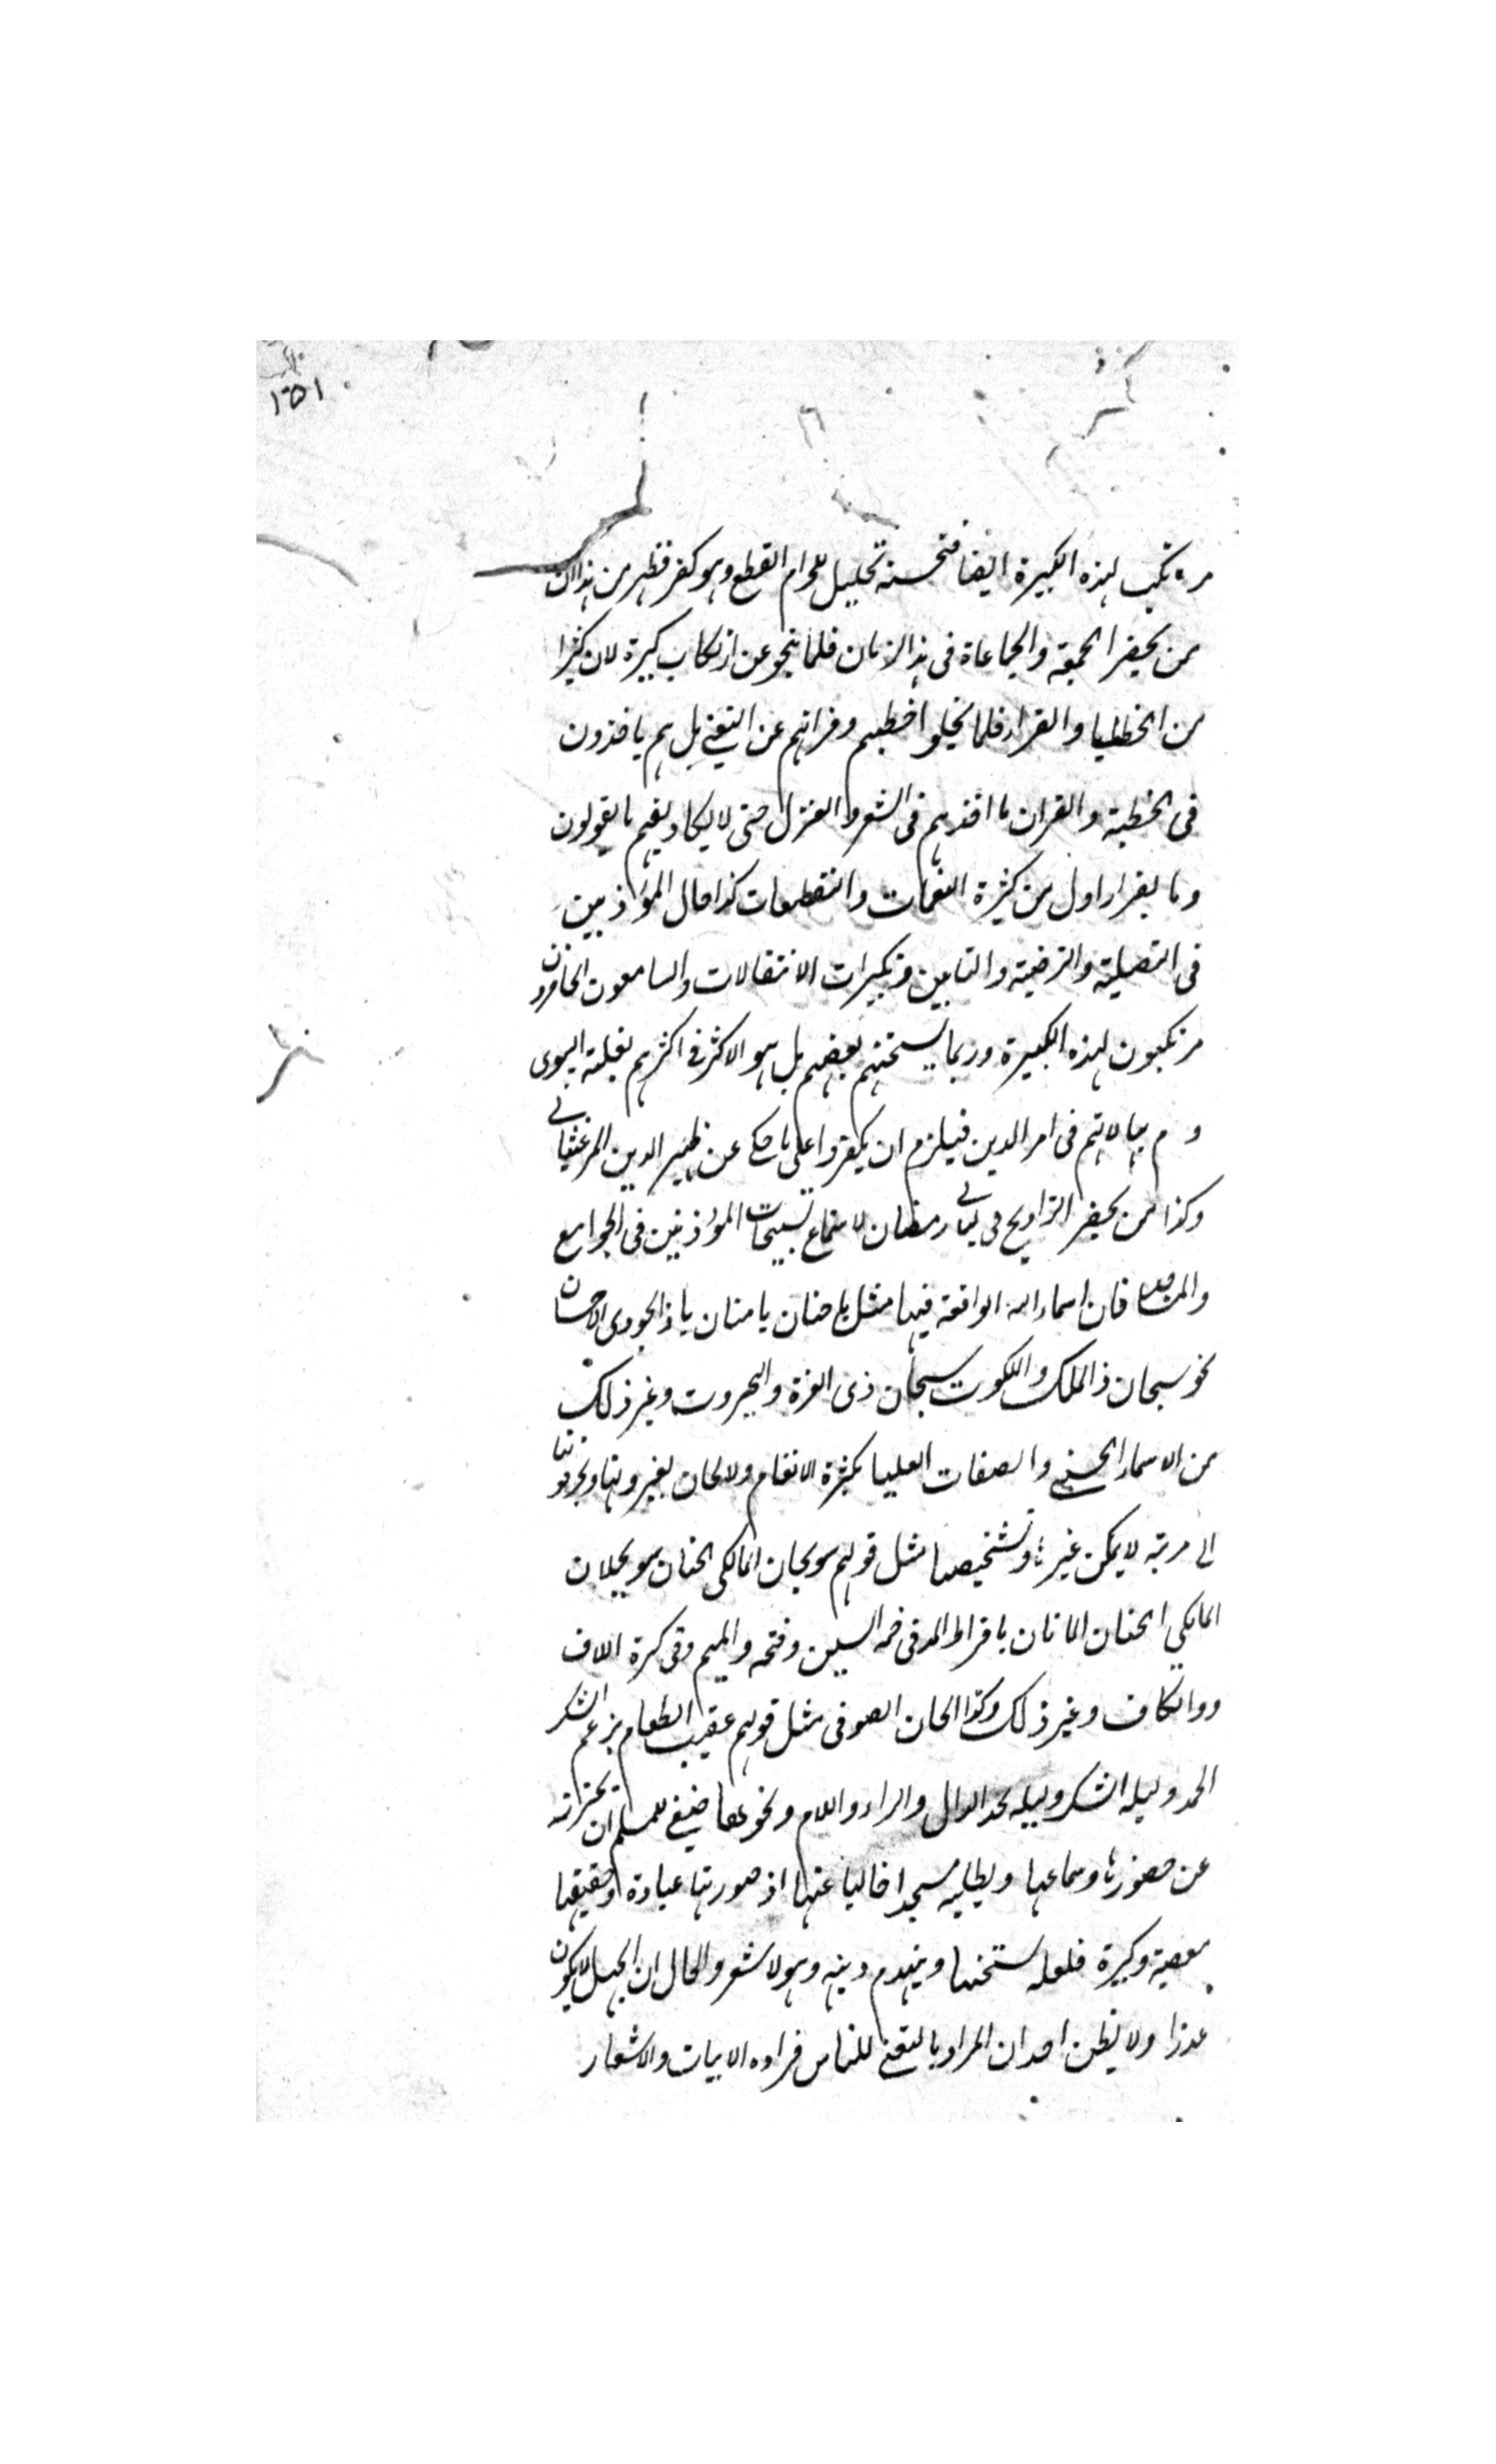 ١٥١
مرتكب لهذه الكبيرة ايضا فتحسنه تحليل للحرام القطع وهو كفر فظهر من هذا ان
من يحضر الجمعة والجماعاة فى هذا الزمان فلما ينجو عن ارتكاب كبيرة لان كثرا
من الخطبا والقراء فلما يخلوا خطبهم وقرانهم عن التغنى بل هم ياخذون
فى الخطبة والقران ما اخذهم فى الشعر والغزل حتى لا يكاد يفهم ما يقولون
وما يقرا اول من كثرة النغمات والتقطعات كذا حال المؤذنين
فى التصلية والترضية والتامين وتكبيرات الانتقالات والسامعون الحاضرون
مرتكبون لهذه الكبيرة وربما يستحسنهم بعضهم بل هو الاكثر فى اكثرهم لغلبة الهوى
و م مبالاتهم فى امر الدين فيلزم ان يكفروا على ما حكى عن ظهير الدين المرغينانى
وكذا من يحضر التراويح فى ليالى رمضان لاستماع تسبيحات المؤذنين فى الجوامع
والمساجد فان اسماء الله الواقعة فيها مثل يا حنان يا منان يا ذا الجودى الاحسان
نحو سبحان ذا الملك والملكوت سبحان ذى العزة والجبروت وغير ذلك
من الاسماء الحسنى والصفات العليا بكثرة الانغام ولالحان يغيرونها ويحرفونها
الى مرتبة لا يمكن غيرها وتشخيصها مثل قولهم سوبحان المالكى الحنان سوبحلان
المالكي الحنان المانان بافراط المد فى ضمه السين وفتحه والميم وفى كسرة اللاف
ووالكاف وغير ذلك وكذا الحان الصوفى مثل قولهم عقيب الطعام بزعم الشكر
الحمد وليله الشكر وليله بحد الدال والراء واللام ونحوها فينبغى للمسلم ان يحترز نه
عن حضورها وسماعها ويطلب مسجدا خاليا عنها اذ صورتها عبادة وحقيقتها
معصية وكبيرة فلعله يستحسنها وينهدم دينه وهو لا يشعر والحال ان الجهل لا يكون
عذرا ولا يظن احد ان المراد بالتغنى للناس قراءه الابيات والاشعار